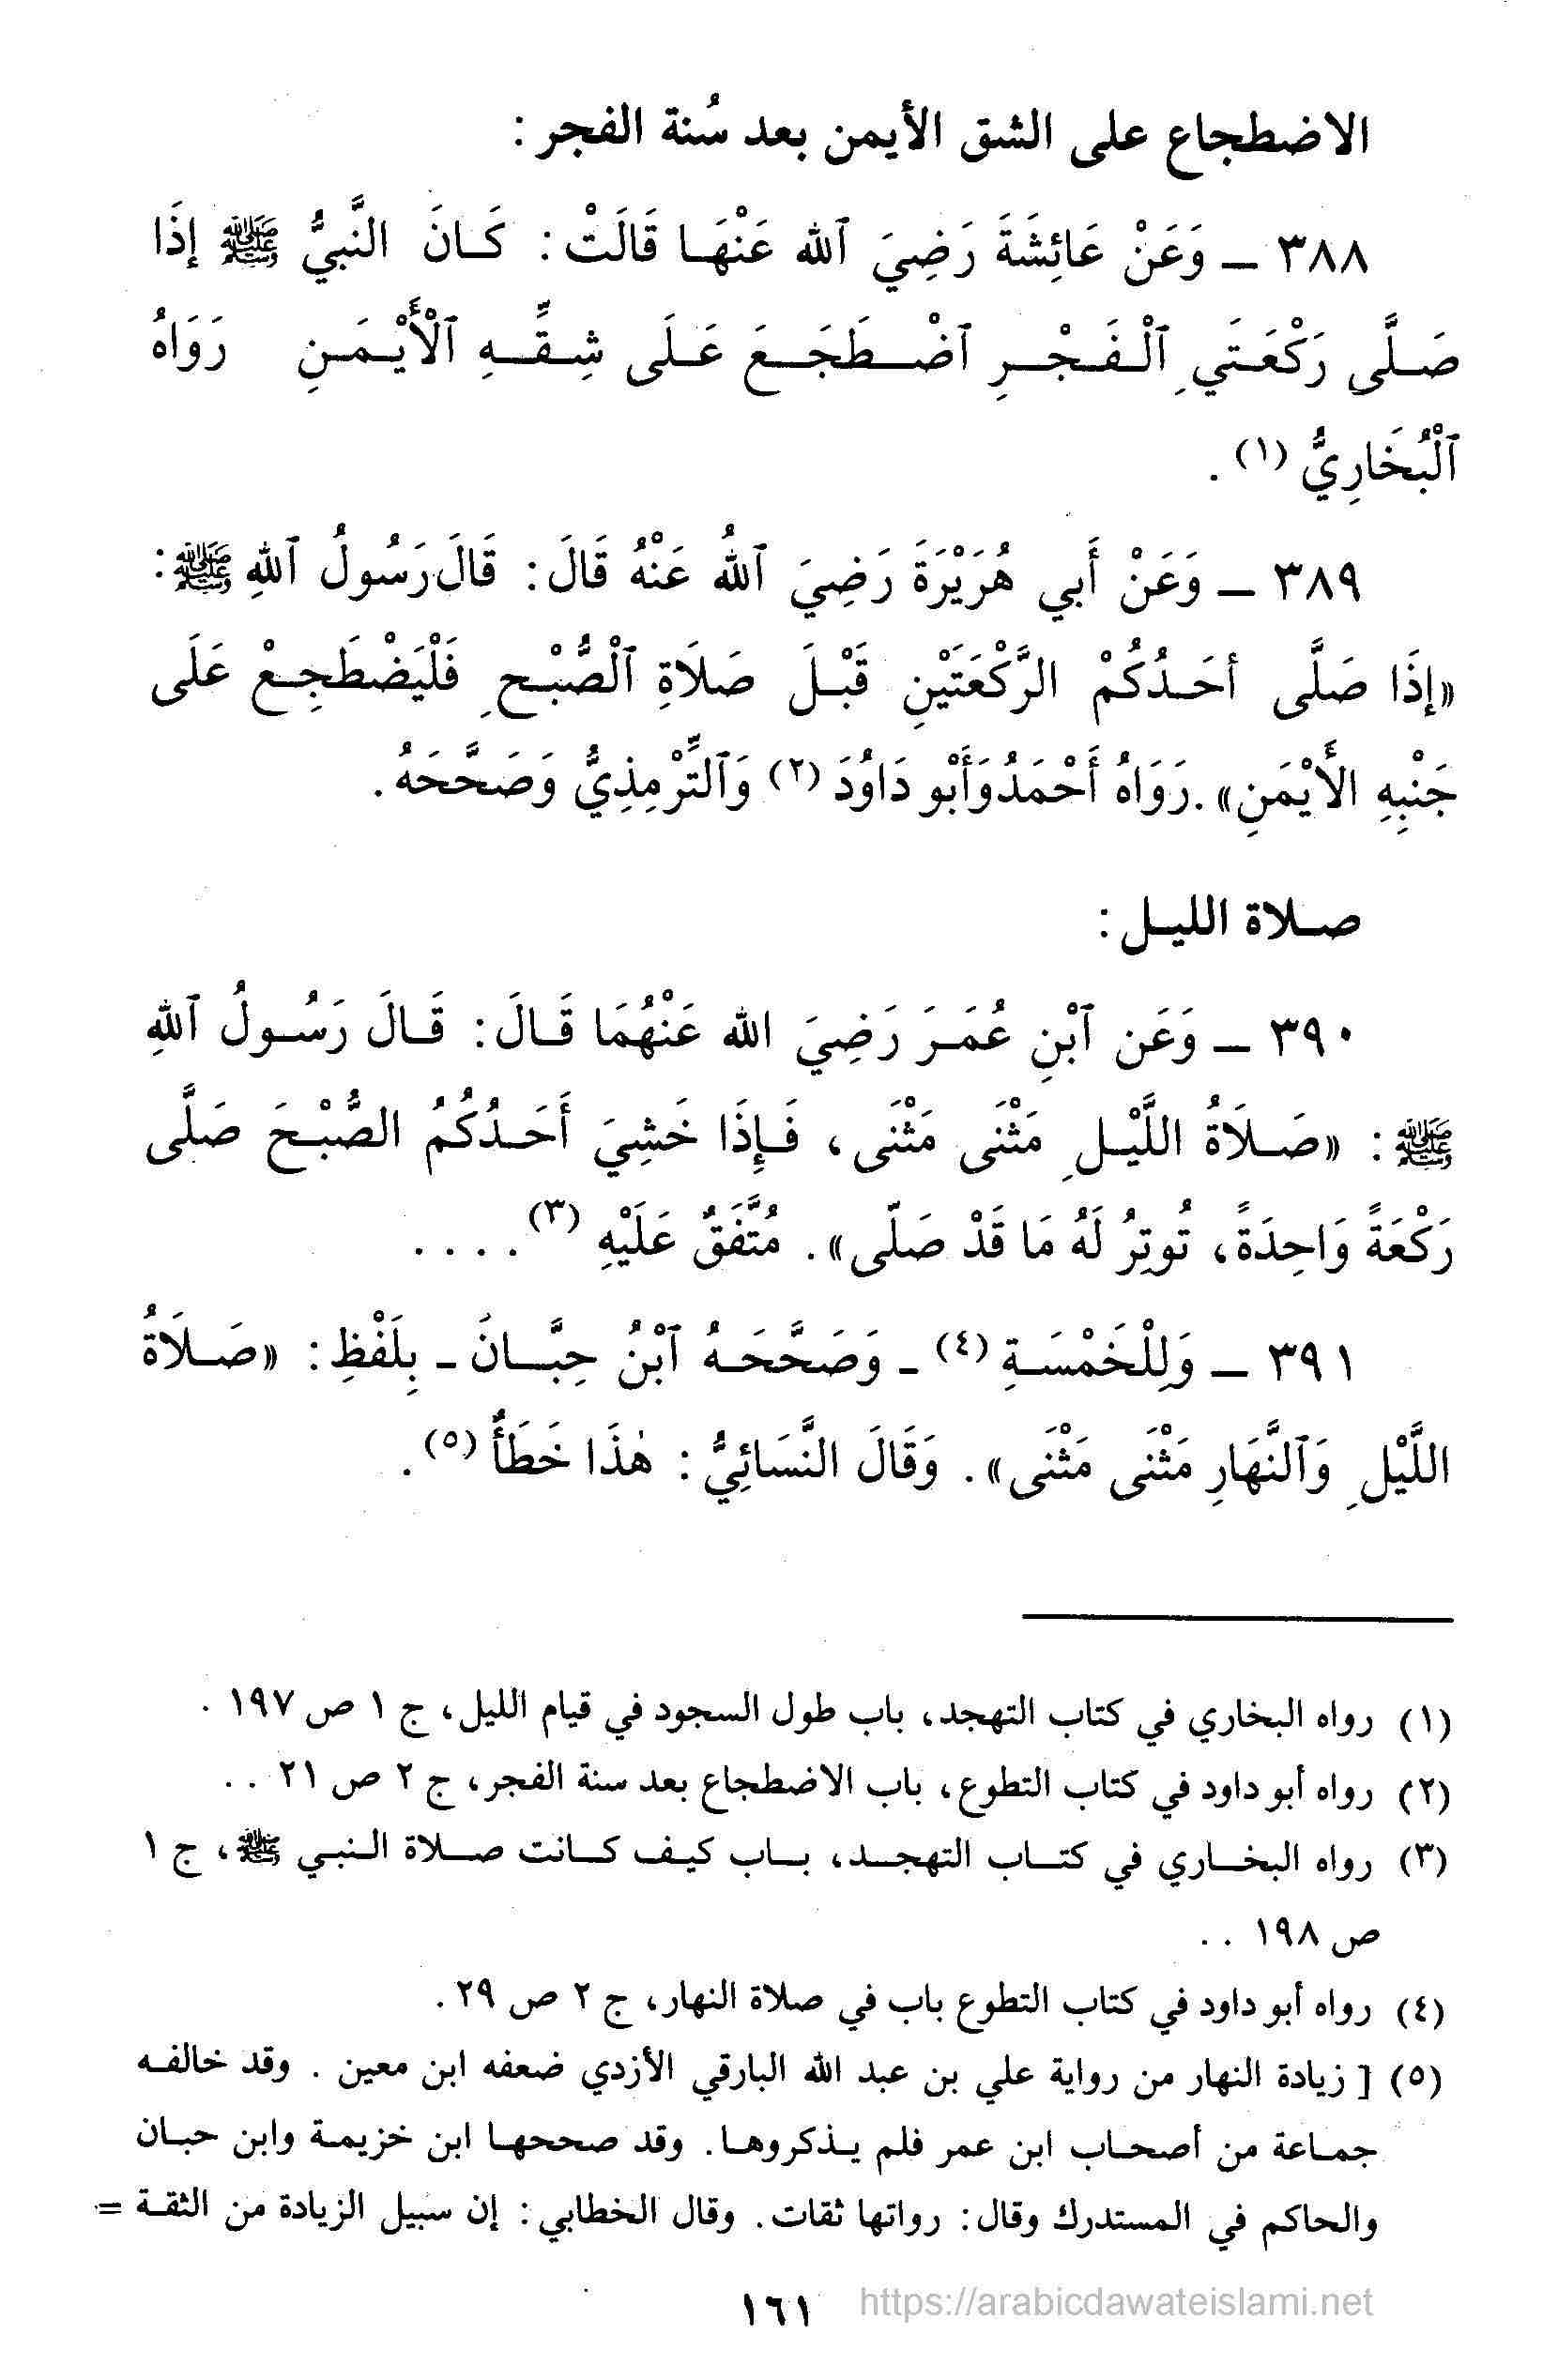 الاضطجاع على الشق الأيمن بعد سُنة الفجر :
٣٨٨ ــ وَعَنْ عَائِشَةَ رَضِيَ ٱلله عَنْهَا قَالَتْ: كَانَ النَّبيُّ ﷺ إذَا
صَلَّى رَكْعَتَي ٱلْفَجْرِ ٱضْطَجَعَ عَلَى شِقِّهِ ٱلْأَيْمَنِ رَوَاهُ
ٱلْبُخَارِيُّ (١) .
٣٨٩ ــ وَعَنْ أَبي هُرَيْرَةَ رَضِيَ ٱللهُ عَنْهُ قَالَ: قَالَ رَسُولُ ٱللهِ ﷺ:
«إذَا صَلَّى أحَدُكُمْ الرَّكْعَتَيْنِ قَبْلَ صَلاَةِ ٱلْصُّبْحِ فَلْيَضْطَجِعْ عَلَى
جَنْبِهِ الأَيْمَنِ». رَوَاهُ أَحْمَدُ وَأَبْو دَاوُدَ (٢) وَٱلتِّرْمِذِيُّ وَصَحَّحَهُ.
صلاة الليل :
٣٩٠ ــ وَعَن ٱبْنِ عُمَرَ رَضِيَ الله عَنْهُمَا قَالَ: قَالَ رَسُولُ ٱللهِ
ﷺ : «صَلاَةُ اللَّيْلِ مَثْنَى مَثْنَى، فَإِذَا خَشِيَ أَحَدُكُمُ الصُّبْحَ صَلَّى
رَكْعَةً وَاحِدَةً، تُوتِرُ لَهُ مَا قَدْ صَلّى» . مُتَّفَقٌ عَلَيْهِ (٣). . . .
٣٩١ ــ وَلِلْخَمْسَةِ (٤) ـ وَصَحَّحَهُ ٱبْنُ حِبَّانَ ـ بِلَفْظِ: «صَلاَةُ
اللَّيْلِ وَٱلنَّهَارِ مَثْنَى مَثْنَى» . وَقَالَ النَّسَائِيُّ : هٰذَا خَطَأٌ (٥).
(١) رواه البخاري في كتاب التهجد، باب طول السجود في قيام الليل، ج ١ ص ١٩٧ .
(٢) رواه أبو داود في كتاب التطوع، باب الاضطجاع بعد سنة الفجر، ج ٢ ص ٢١ . .
(٣) رواه البخاري في كتاب التهجد، باب كيف كانت صلاة النبي ﷺ، ج ١
ص ١٩٨ . .
(٤) رواه أبو داود في كتاب التطوع باب في صلاة النهار، ج ٢ ص ٢٩ .
(٥) [ زيادة النهار من رواية علي بن عبد الله البارقي الأزدي ضعفه ابن معين . وقد خالفه
جماعة من أصحاب ابن عمر فلم يذكروها. وقد صححها ابن خزيمة وابن حبان
والحاكم في المستدرك وقال: رواتها ثقات. وقال الخطابي: إن سبيل الزيادة من الثقة =
١٦١
https://arabicdawateislami.net